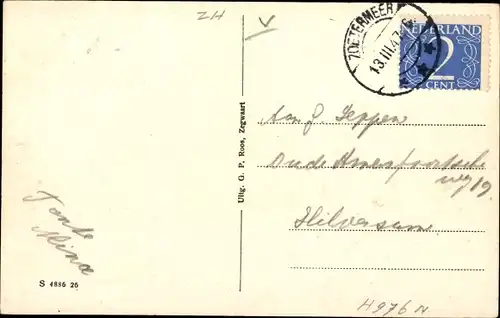 ZH
V
ZOETERMEER
13.III.47
NEDERLAND
2
CENT
Tante
Mina
S 4886 26
Uitg. G. P. Roos, Zegwaart
Aan J. Seppen
Oude Amersfoortsche
weg 19
Hilversum
4976 N